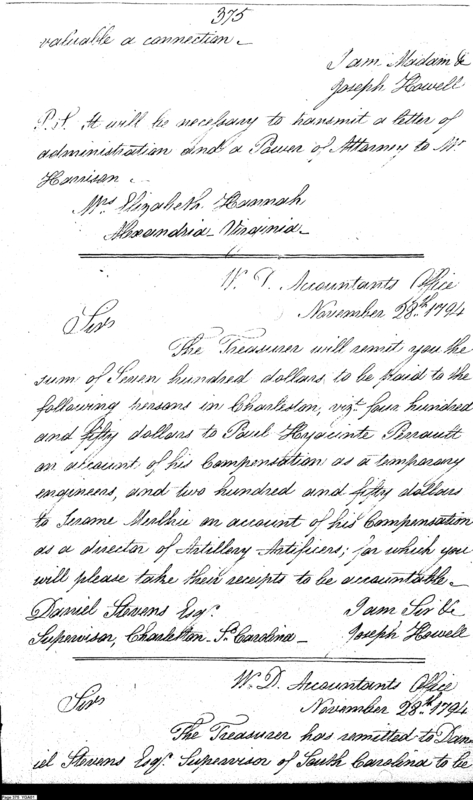 375
valuable a connection —
I am Madam &c
Joseph Howell
P.S. It will be necessary to transmit a letter of
administration and a Power of Attorney to Mr
Harrison —
Mrs Elizabeth Hannah
Alexandria Virginia —
W. D. Accountants Office
November 28th 1794
Sir
The Treasurer will remit you the
sum of Seven hundred dollars to be paid to the
following persons in Charleston, vizt. four hundred
and fifty dollars to Paul Hyacinte Perrault
on account of his Compensation as a temporary
engineers, and two hundred and fifty dollars
to Jerome on account of his Compensation
as a director of Artillery Artificers; for which you
will please take their receipts to be accountable —
Daniel Stevens Esqr. I am Sir &c
Supervisor, Charleston So. Carolina — Joseph Howell
W. D. Accountants Office
November 28th. 1794
Sir
The Treasurer has remitted to Dan
iel Stevens Esqr. Supervisor of South Carolina to be